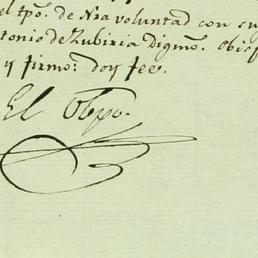 el tpo. de Nra voluntad con su
tonio de Zubiria Digmo. Obisp
y firmo: doy fee.
El Obpo.